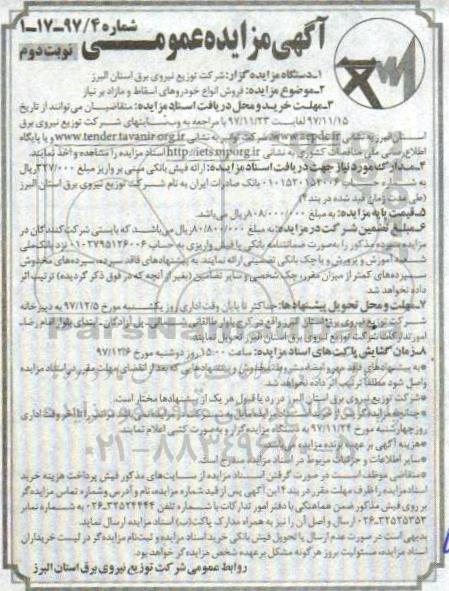 شماره ۹۷/۴-۱۷-۱
آگهی مزایده عمومی
نوبت دوم
۱-دستگاه مزایده گزار: شرکت توزیع نیروی برق استان البرز
۲-موضوع مزایده: فروش انواع خودروهای اسقاط و مازاد بر نیاز
۳-مهلت خرید و محل دریافت اسناد مزایده: متقاضیان می توانند از تاریخ
۹۷/۱۱/۱۵ لغایت ۹۷/۱۱/۲۳ با مراجعه به وبسایتهای شرکت توزیع برق
استان البرز به نشانی www.aepdc.ir شرکت توانیر به نشانی www.tender.tavanir.org.ir و یا پایگاه
اطلاع رسانی ملی مناقصات کشوری به نشانی http://iets.mporg.ir اسناد مزایده را مشاهده و اخذ نمایند.
۴-مدارک مورد نیاز جهت دریافت اسناد مزایده: ارائه فیش بانکی مبنی بر واریز مبلغ ۳۲۷/۰۰۰ ریال
به شماره حساب ۰۱۰۱۵۲۰۱۵۳۰۰۶ بانک صادرات ایران به نام شرکت توزیع نیروی برق استان البرز
(طی مدت زمان قید شده در بند ۳)
۵-قیمت پایه مزایده: به مبلغ ۸۰۸/۰۰۰/۰۰۰ ریال می باشد.
۶-مبلغ تضمین شرکت در مزایده: به مبلغ ۸۰/۸۰۰/۰۰۰ ریال می باشد که بایستی شرکت کنندگان در
مزایده سپرده مذکور را به صورت ضمانتنامه بانکی یا فیش واریزی به حساب ۰۱۰۲۷۹۵۱۲۶۰۰۶ نزد بانک ملی
شعبه آموزش و پرورش و یا چک بانکی تضمینی ارائه نمایند. به پیشنهادهای فاقد سپرده، سپرده های مخدوش
سپرده های کمتر از میزان مقرر، چک شخصی و سایر تضامین (بغیر از آنچه که در فوق ذکر گردیده) ترتیب اثر
داده نخواهد شد.
۷-مهلت و محل تحویل پیشنهادها: حداکثر تا پایان وقت اداری روز یکشنبه مورخ ۹۷/۱۲/۵ به دبیرخانه
شرکت توزیع نیروی برق استان البرز واقع در کرج، بلوار طالقانی شمالی، پل آزادگان، ابتدای بلوار امام رضا،
امور تدارکات شرکت توزیع نیروی برق استان البرز تحویل نمایند.
۸-زمان گشایش پاکت های اسناد مزایده: ساعت ۱۵:۰۰ روز دوشنبه مورخ ۹۷/۱۲/۶
*به پیشنهادهای فاقد مهر و امضاء، مشروط، مخدوش و پیشنهادهایی که بعد از انقضای مهلت مقرر در اسناد مزایده
واصل شود مطلقاً ترتیب اثر داده نخواهد شد.
*شرکت توزیع نیروی برق استان البرز در رد یا قبول هر یک از پیشنهادها مختار است.
روز چهارشنبه مورخ ۹۷/۱۱/۲۴ به دستگاه مزایده گزار و به صورت کتبی اعلام نمایند.
*هزینه آگهی بر عهده برنده مزایده می باشد.
*سایر اطلاعات و جزئیات مربوط در اسناد مزایده مندرج است.
*متقاضی موظف است در صورت گرفتن اسناد مزایده از سایت های مذکور فیش پرداخت هزینه خرید
اسناد مزایده را ظرف مهلت مقرر در بند ۳ این آگهی پس از قید شماره مزایده، نام و آدرس و شماره تماس مزایده گر
بر روی فیش مذکور ضمن هماهنگی با دفتر امور تدارکات با شماره تلفن ۰۲۶-۳۲۵۲۴۴۴۴ به شماره نمابر
۰۲۶-۳۲۵۲۵۳۵۳ ارسال و اصل آن را نیز به همراه مدارک پاکت (ب) اسناد مزایده ارسال نماید.
بدیهی است در صورت عدم ارسال یا تحویل فیش بانکی خرید اسناد مزایده و ثبت نام مزایده گر در لیست خریداران
اسناد مزایده، مسئولیت بروز هر گونه مشکل بر عهده شخص مزایده گر خواهد بود.
روابط عمومی شرکت توزیع نیروی برق استان البرز
۰۲۱-۸۸۳۴۹۶۷۰-۵